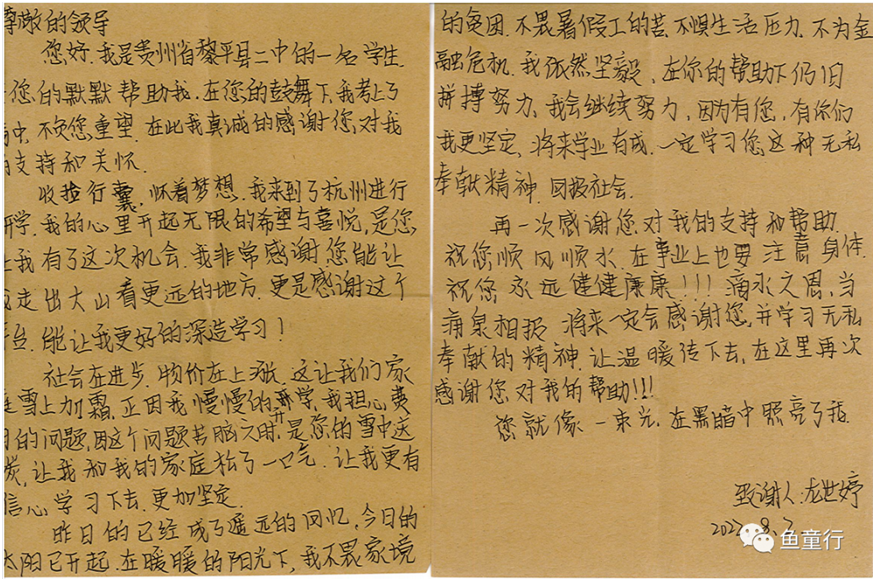 尊敬的领导
您好.我是贵州省黎平县二中的一名学生.
您的默默帮助我.在您的鼓舞下,我考上了
不负您重望.在此我真诚的感谢您,对我
支持和关怀.
收捡行囊,怀着梦想.我来到了杭州进行
研学.我的心里开起无限的希望与喜悦,是您
让我有了这次机会.我非常感谢您能让
我走出大山看更远的地方.更是感谢这个
平台.能让我更好的深造学习!
社会在进步.物价在上涨.这让我们家
庭雪上加霜.正因我慢慢的升学,我担心费
用的问题,因这个问题苦脑之时,是您的雪中送
炭,让我和我的家庭松了一口气.让我更有
信心学习下去.更加坚定.
昨日的已经成了遥远的回忆,今日的
太阳已开起.在暖暖的阳光下,我不畏家境
的贫困.不畏暑假工的苦.不惧生活压力.不为金
融危机.我依然坚毅.在你的帮助下仍旧
拼搏努力,我会继续努力,因为有您,有你们
我更坚定,将来学业有成.一定学习您这种无私
奉献精神.回报社会.
再一次感谢您对我的支持和帮助.
祝您顺风顺水.在事业上也要注意身体.
祝您永远健健康康!!!滴水之恩,当
涌泉相报 将来一定会感谢您,并学习无私
奉献的精神.让温暖传下去,在这里再次
感谢您对我的帮助!!!
您就像一束光.在黑暗中照亮了我.
致谢人:龙世婷
8.2
鱼童行